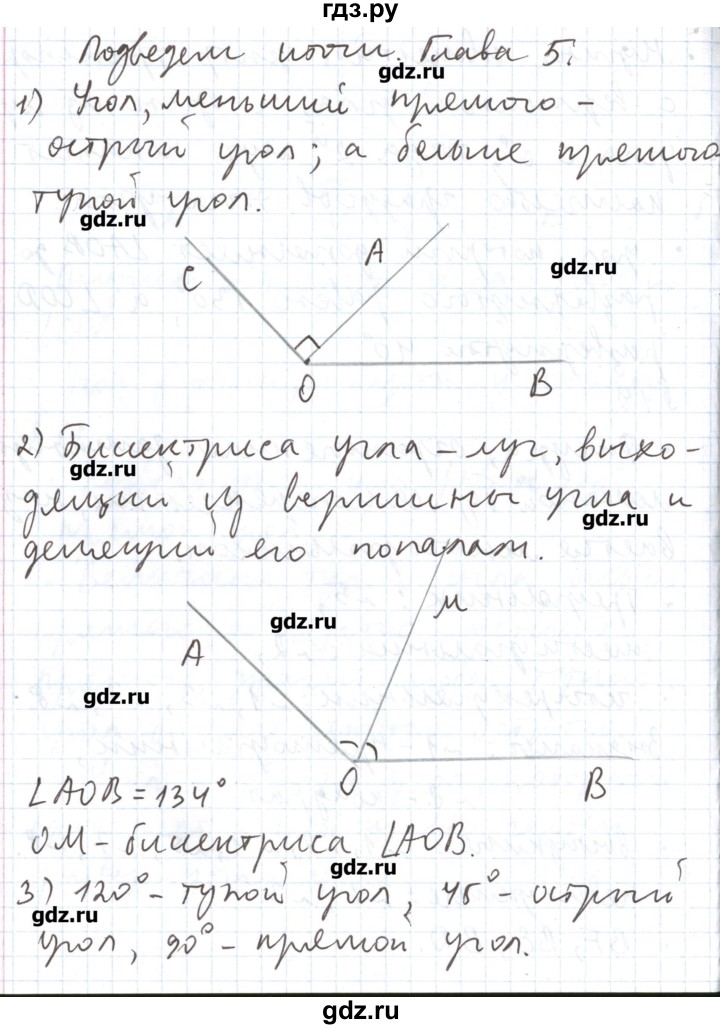 гдз.ру
Подведем итоги. Глава 5:
gdz.ru
1) Угол, меньший прямого –
острый угол; а больше прямого
тупой угол.
gdz.ru
C
A
gdz.ru
O
B
2) Биссектриса угла – луч, выхо-
gdz.ru
дящий из вершины угла и
gdz.ru
делящий его пополам.
M
gdz.ru
A
gdz.ru
O
B
∠AOB = 134°
OM – биссектриса ∠AOB.
gdz.ru
3) 120° – тупой угол, 45° – острый
gdz.ru
угол, 90° – прямой угол.
gdz.ru